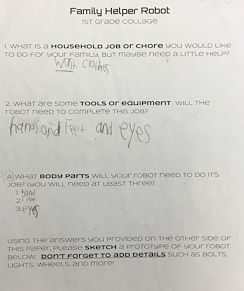 Family Helper Robot
1st Grade Collage
1. What is a household job or chore you would like
to do for your family, but maybe need a little help?
Wash Clothes
2. What are some tools or equipment will the
robot need to complete this job?
hands and Feet and eyes
4. What body parts will your robot need to do its
job? (You will need at least three)
1. hand
2.
3. eyes
Using the answers you provided on the other side of
this paper, please sketch a prototype of your robot
below. Don't forget to add details such as bolts,
lights, wheels, and more!